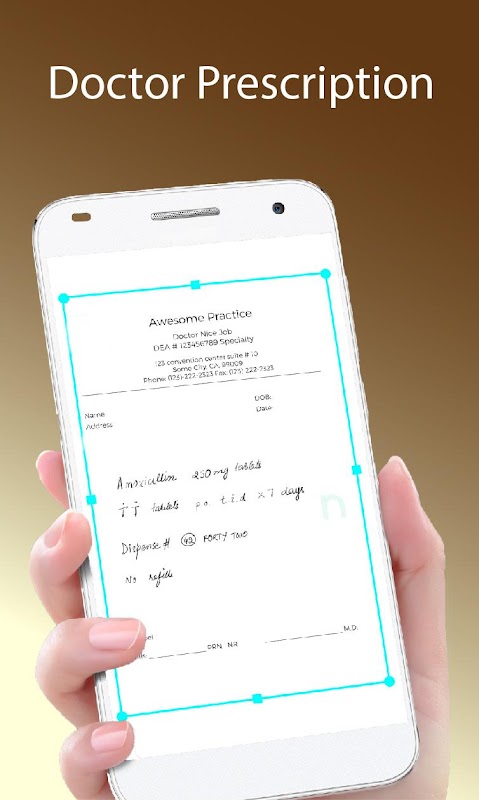 Doctor Prescription
Awesome Practice
Doctor Nice Job
DEA # 123456789 Specialty
123 convention center suite # 10
Some City, CA, 99009
Phone: 023)-222-2323 Fax: 023) 222-2323
Name
DOB:
Address
Date:
Amoxicillin 250mg tablets
†† tablets p.o. t.i.d x 7 days
n
Dispense # 42 FORTY TWO
No refills
PRN NR
M.D.